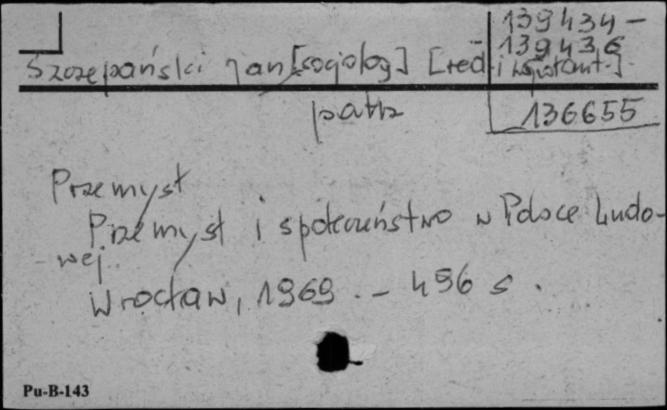 139434-
139436
Szczepański Jan [socjolog] [red. i współaut.]
patrz
136655
Przemysł
Przemysł i społeczeństwo w Polsce Ludo-
wej.
Wrocław, 1969. - 496 s.
Pu-B-143